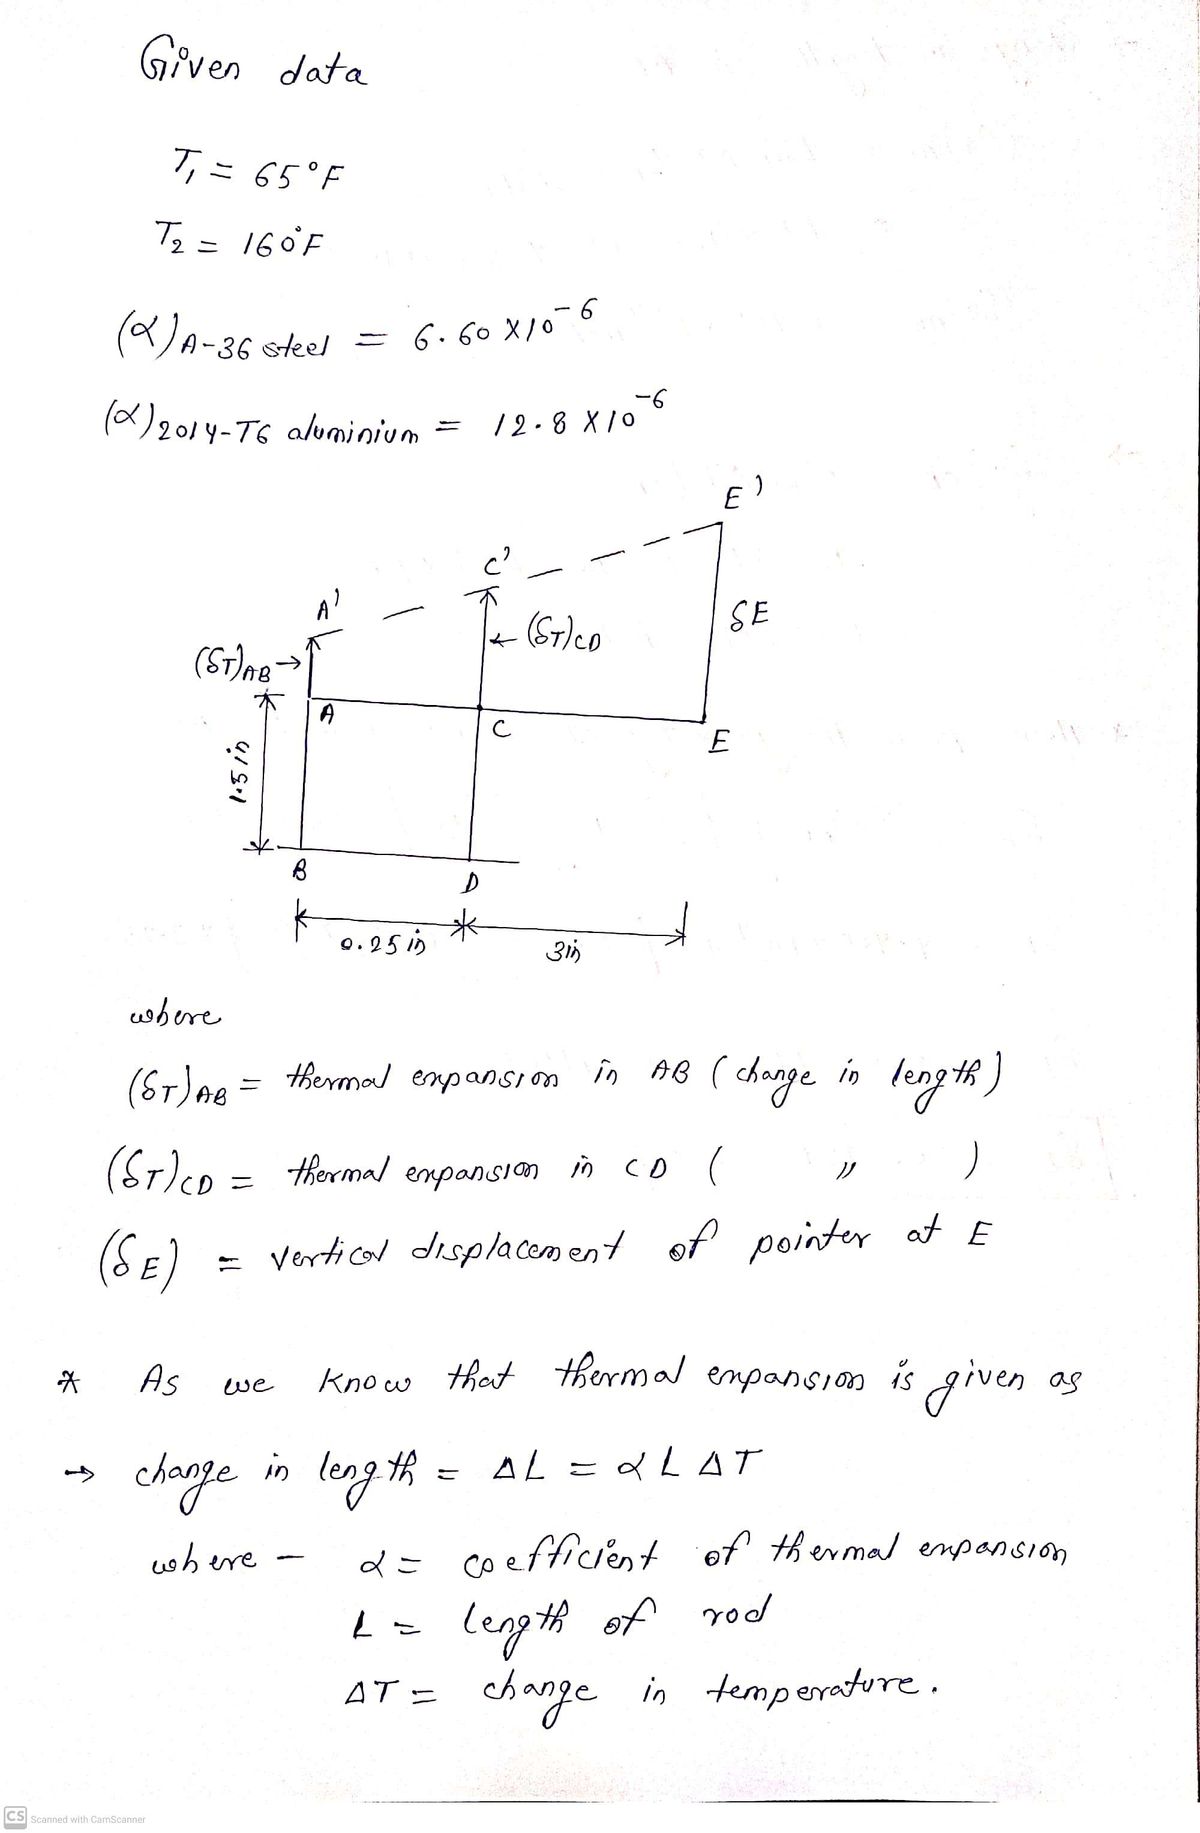 Given data
T₁ = 65°F
T₂ = 160°F
(α)A-36 steel = 6.60 X10⁻⁶
(α)2014-T6 aluminium = 12.8 X10⁻⁶
E'
C'
A'
δE
(δT)CD
(δT)AB
A
C
E
1.5 in
B
D
0.25 in
3in
where
(δT)AB = thermal expansion in AB ( change in length )
(δT)CD = thermal expansion in CD ( 〃 )
(δE) = vertical displacement of pointer at E
* As we know that thermal expansion is given as
→ change in length = ΔL = αLΔT
where - α = coefficient of thermal expansion
L = length of rod
ΔT = change in temperature.
CS Scanned with CamScanner